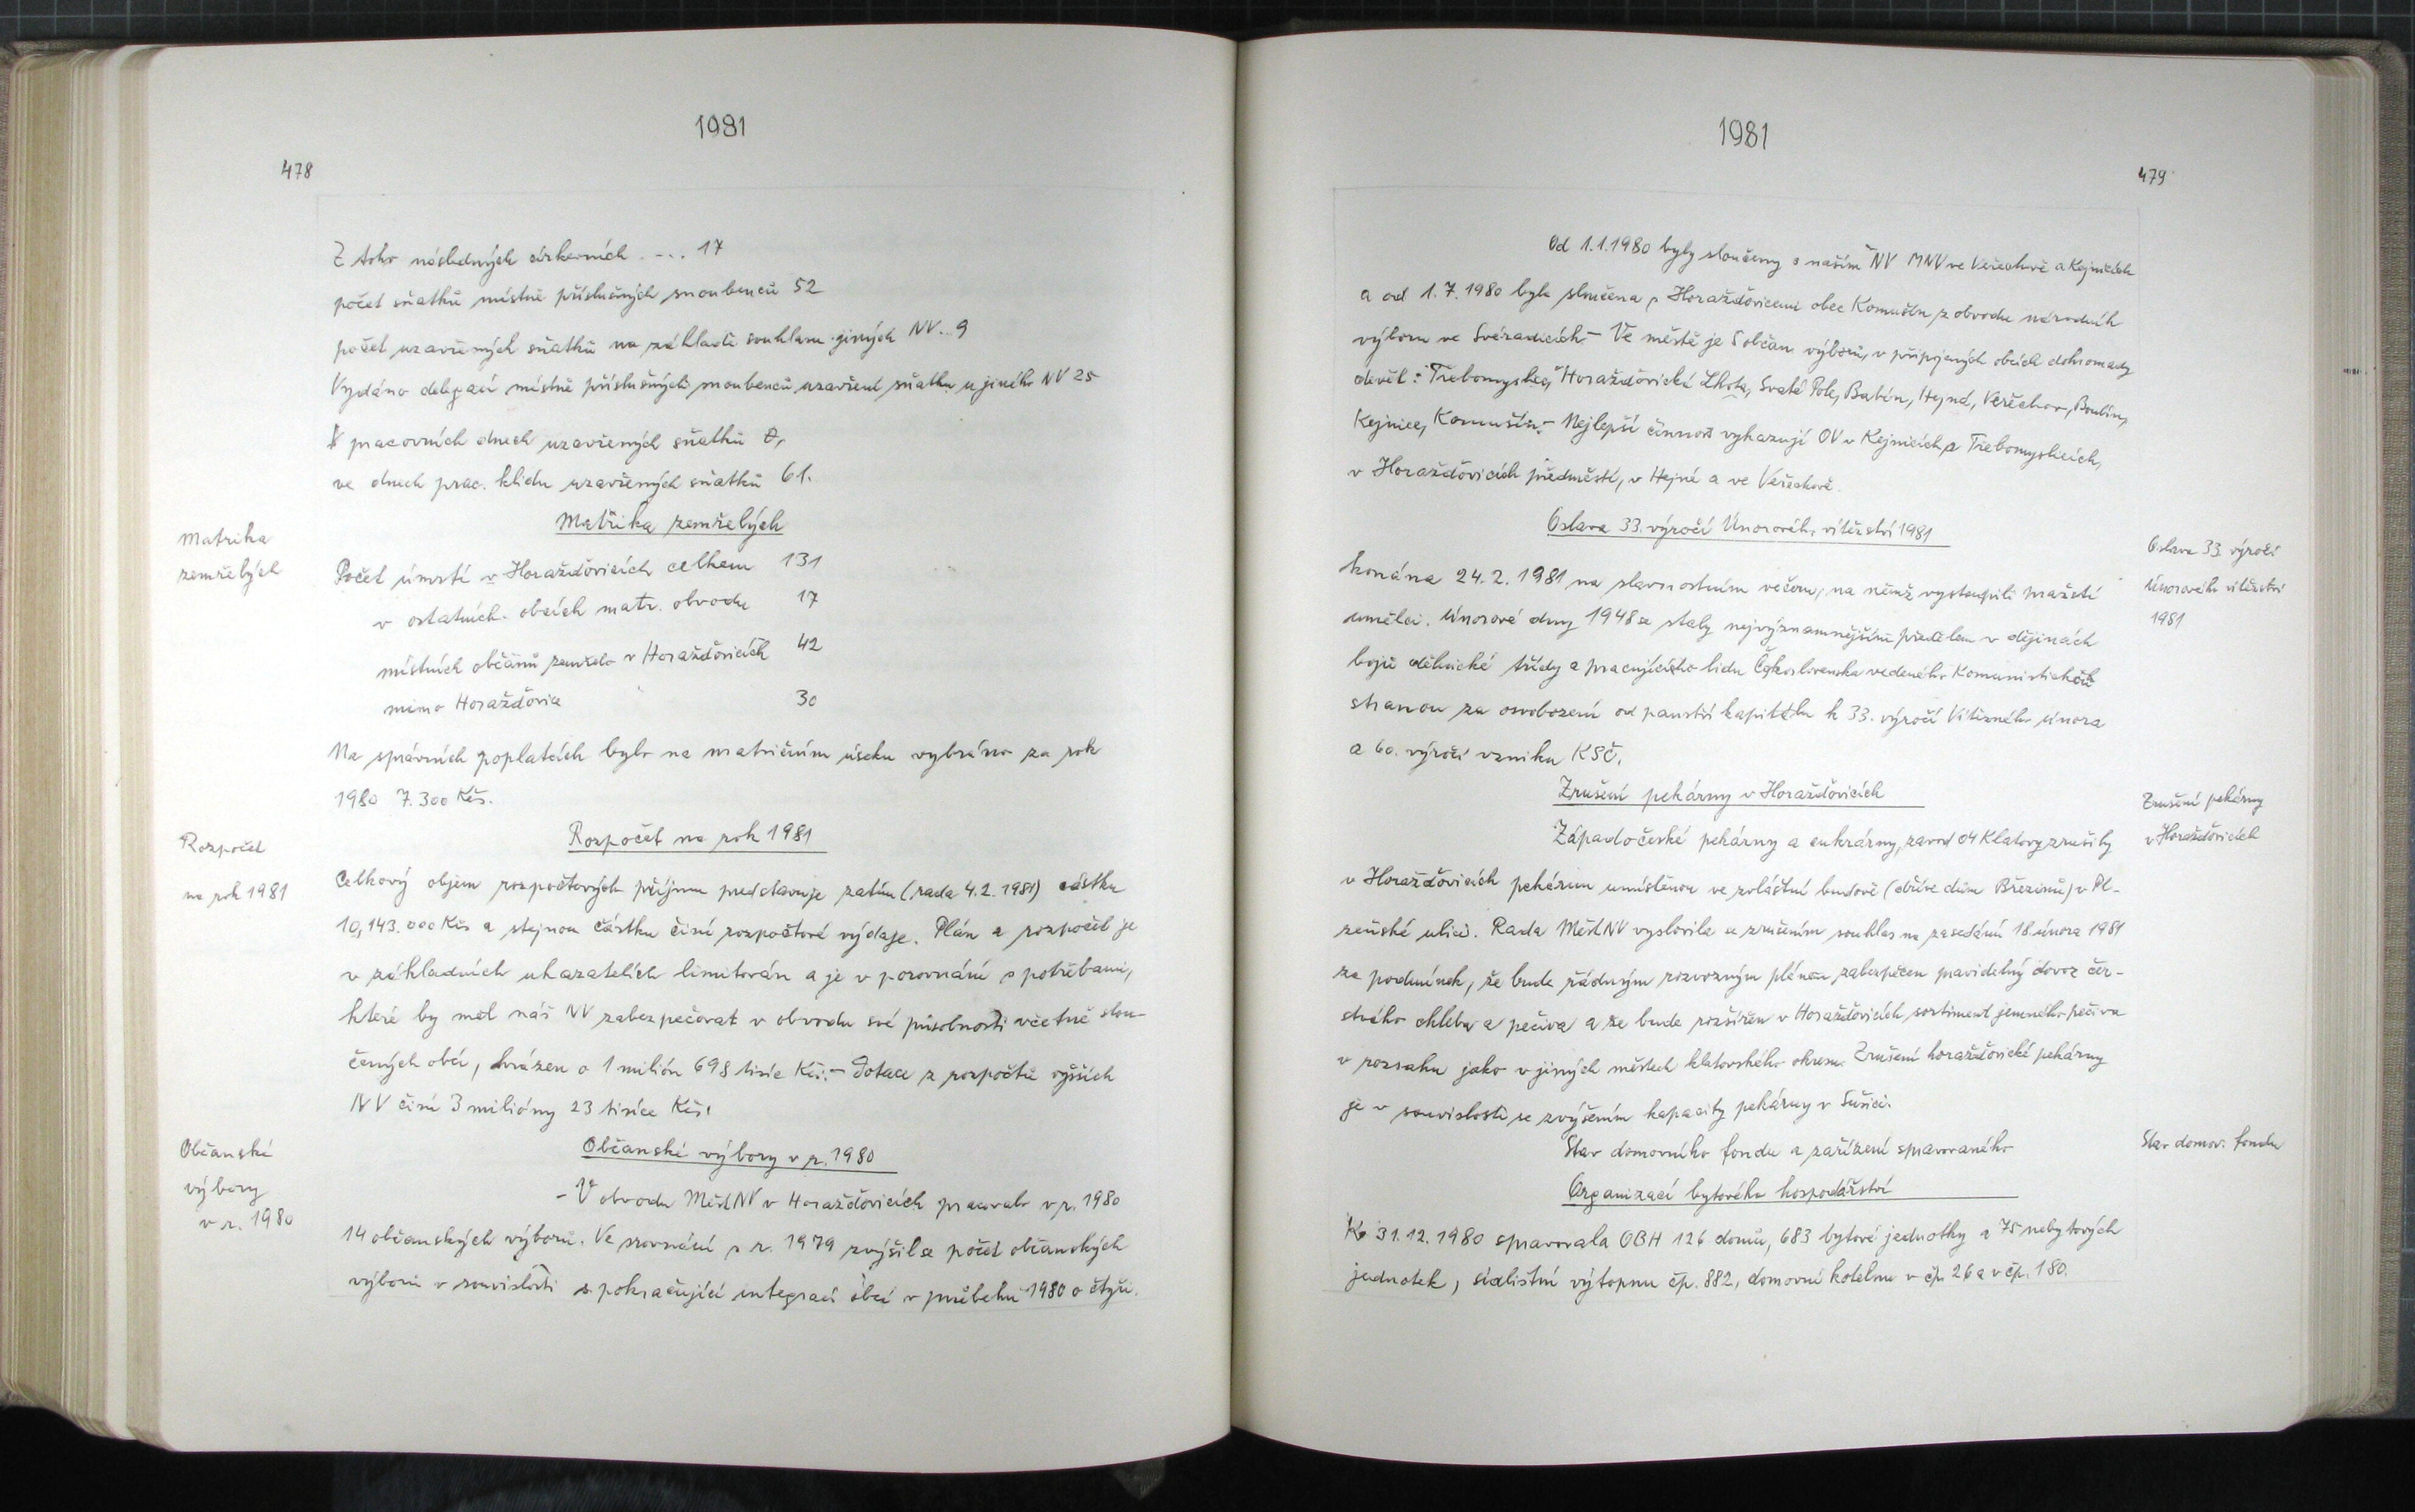 1981
478
Z toho následných církevních . - . . 17
počet sňatků místně příslušných snoubenců 52
počet uzavřených sňatků na základě souhlasu jiných NV... 9
Vydáno delegací místně příslušných snoubenců uzavření sňatku u jiného NV 25
V pracovních dnech uzavřených sňatků 0,
ve dnech prac. klidu uzavřených sňatků 61.
Matrika zemřelých
Matrika
zemřelých
Počet úmrtí v Horažďovicích celkem 131
v ostatních obcích matr. obvodu 17
místních občanů zemřelo v Horažďovicích 42
mimo Horažďovice 30
Na správních poplatcích bylo na matričním úseku vybráno za rok
1980 7.300 Kčs.
Rozpočet na rok 1981
Rozpočet
na rok 1981
Celkový objem rozpočtových příjmu predstavuje zatím (rada 4.2.1981) částku
10,143.000 Kčs a stejnou částku činí rozpočtové výdaje. Plán a rozpočet je
v základních ukazatelích limitován a je v porovnání s potřebami,
které by měl náš NV zabezpečovat v obvodu své působnosti včetně slou-
čených obcí, krácen o 1 milión 698 tisíc Kčs.- Dotace z rozpočtů vyšších
NV činí 3 milióny 23 tisíce Kčs.
Občanské výbory v r. 1980
Občanské
výbory
v r. 1980
- V obvodu MěstNV v Horažďovicích pracovalo v r. 1980
14 občanských výborů. Ve srovnání s r. 1979 zvýšil se počet občanských
výborů v souvislosti s pokračující integrací obcí v průběhu 1980 o čtyři.
1981
479
Od 1.1.1980 byly sloučeny s naším NV MNV ve Veřechově a Kejnicích
a od 1.7.1980 byla sloučena s Horažďovicemi obec Komušín z obvodu národních
výboru ve Svéradicích.- Ve městě je 5 občan výborů, v připojených obcích dohromady
devět: Třebomyslice, Horažďovická Lhota, Svaté Pole, Babín, Hejná, Veřechov, Boubín,
Kejnice, Komušín.- Nejlepší činnost vykazují OV v Kejnicích, Třebomyslicích,
v Horažďovicích předměstí, v Hejné a ve Veřechově.
Oslava 33. výročí Únorového vítězství 1981
Oslava 33. výročí
Únorového vítězství
1981
konána 24.2.1981 na slavnostním večeru, na němž vystoupili pražští
umělci. Únorové dny 1948 se staly nejvýznamnějším předělem v dějinách
bojů dělnické třídy a pracujícího lidu Československa vedeného Komunistickou
stranou za osvobození od panství kapitálu k 33. výročí Vítězného února
a 60. výročí vzniku KSČ.
Zrušení pekárny v Horažďovicích
Zrušení pekárny
v Horažďovicích
Západočeské pekárny a cukrárny, zavod 04 Klatovy zrušily
v Horažďovicích pekárnu umístěnou ve zvláštní budově (dříve dům Březinů) v Pl-
zeňské ulici. Rada MěstNV vyslovila se zrušením souhlas na zasedání 18. února 1981
za podmínek, že bude řádným rozvozným plánem zabezpečen pravidelný dovoz čer-
stvého chleba a pečiva a že bude rozšířen v Horažďovicích sortiment jemného pečiva
v rozsahu jako v jiných městech klatovského okresu. Zrušení horažďovické pekárny
je v souvislosti se zvýšením kapacity pekárny v Sušici.
Stav domovního fondu a zařízení spravovaného
Stav domov. fondu
Organizací bytového hospodářství
K 31.12.1980 spravovala OBH 126 domů, 683 bytové jednotky a 75 nebytových
jednotek, sídlištní výtopnu čp. 882, domovní kotelnu v čp. 26 a v čp. 180.